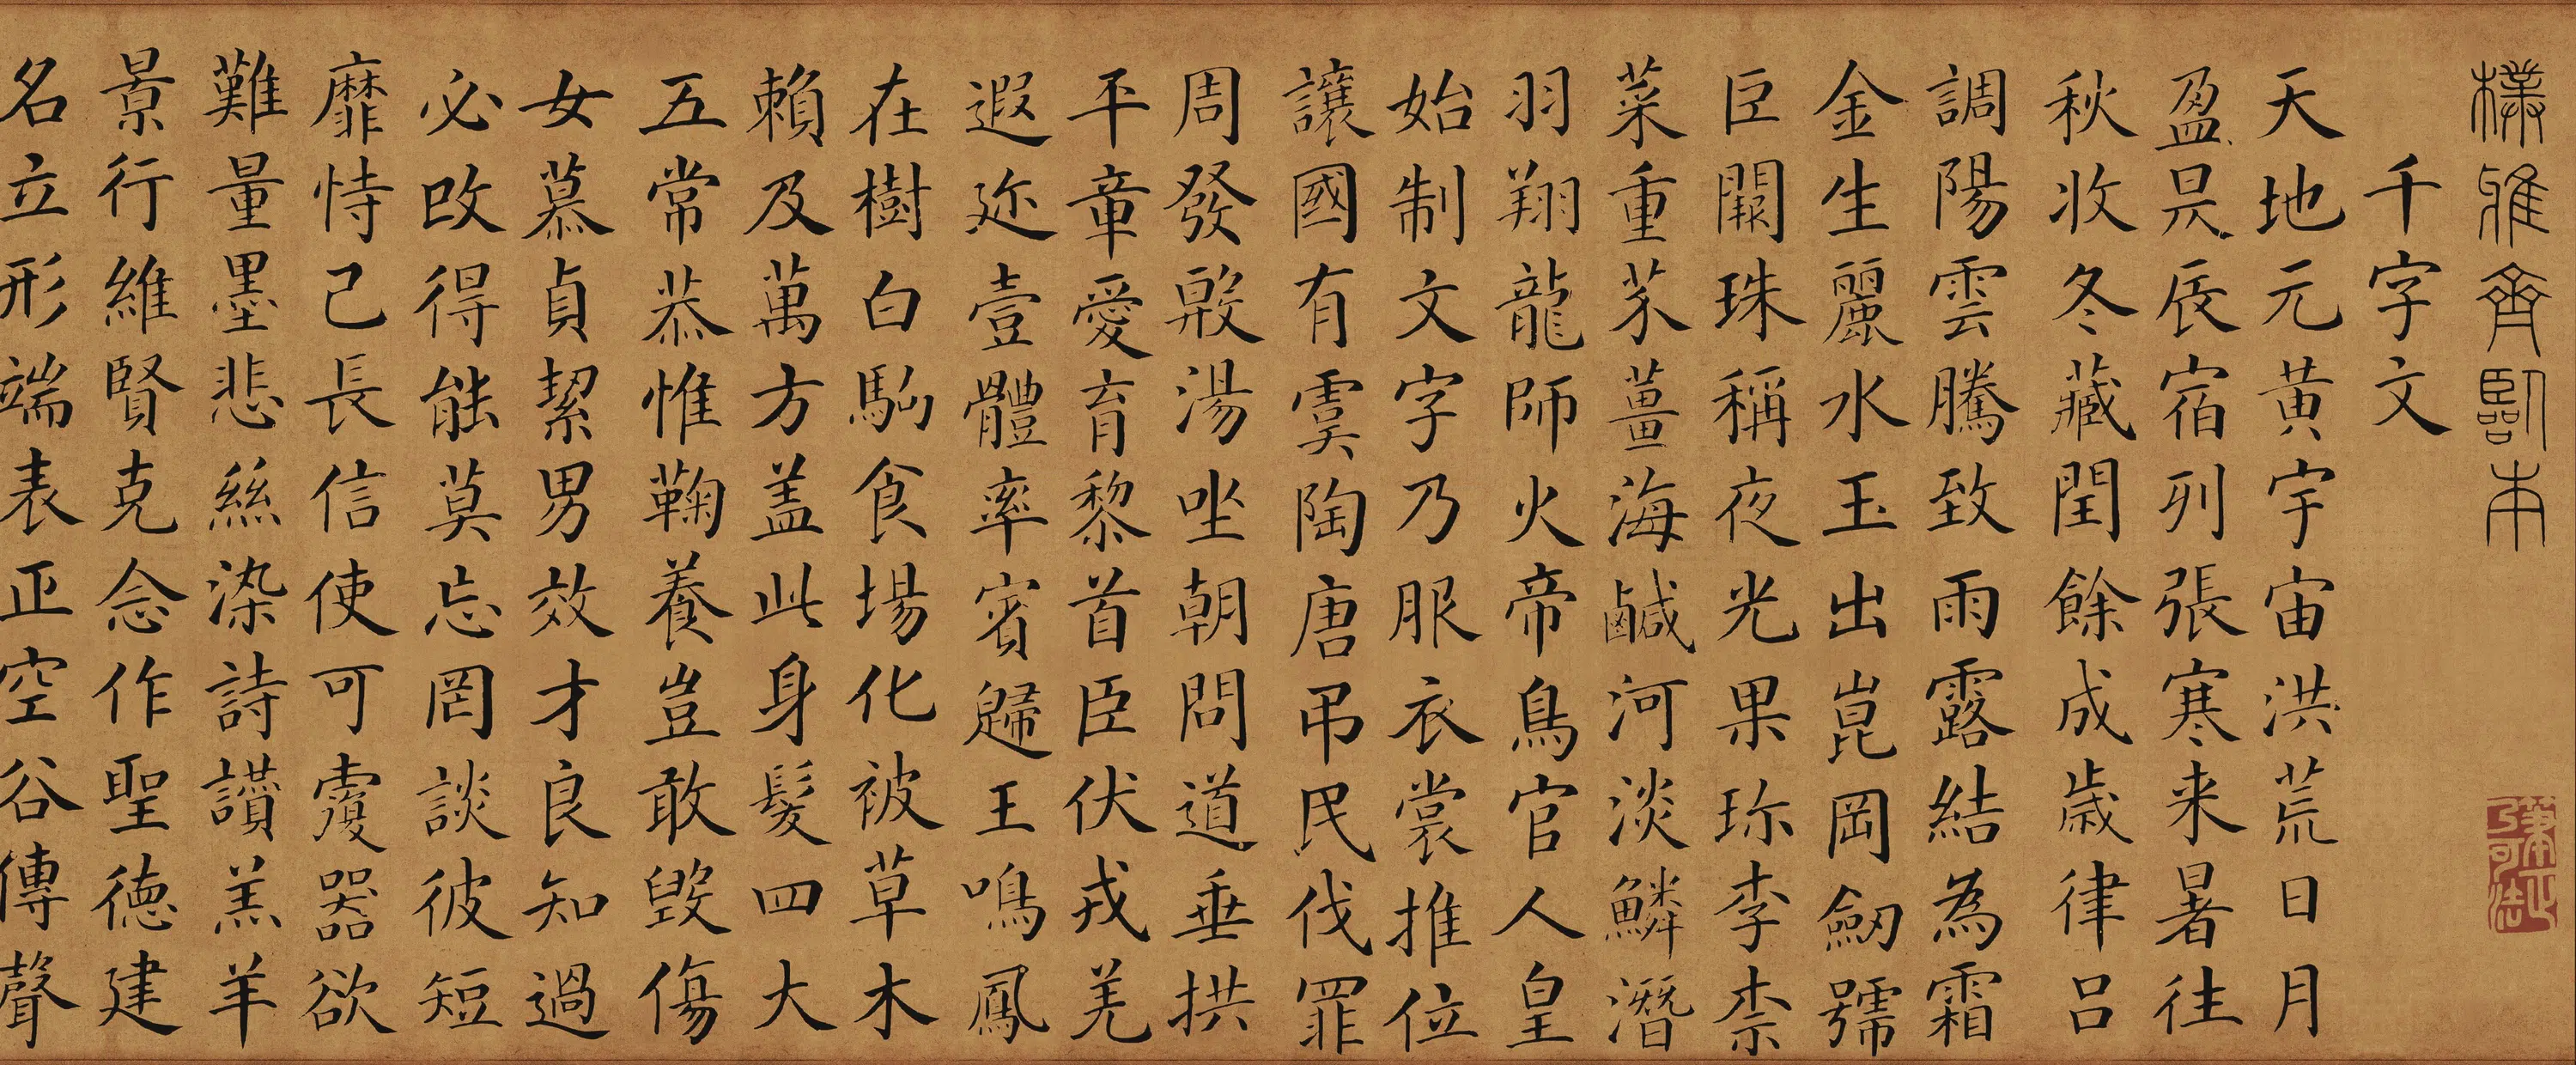 樸雅齋臨本
千字文
天地元黄宇宙洪荒日月
盈昃辰宿列張寒来暑往
秋收冬藏閏餘成歲律吕
調陽雲騰致雨露結為霜
金生麗水玉出崑岡劒號
巨闕珠稱夜光果珎李柰
菜重芥薑海鹹河淡鱗潛
羽翔龍師火帝鳥官人皇
始制文字乃服衣裳推位
讓國有虞陶唐弔民伐罪
周發殷湯坐朝問道垂拱
平章愛育黎首臣伏戎羌
遐迩壹體率賓歸王鳴鳳
在樹白駒食場化被草木
賴及萬方盖此身髮四大
五常恭惟鞠養豈敢毀傷
女慕貞絜男效才良知過
必改得能莫忘罔談彼短
靡恃己長信使可覆器欲
難量墨悲絲染詩讚羔羊
景行維賢克念作聖德建
名立形端表正空谷傳聲